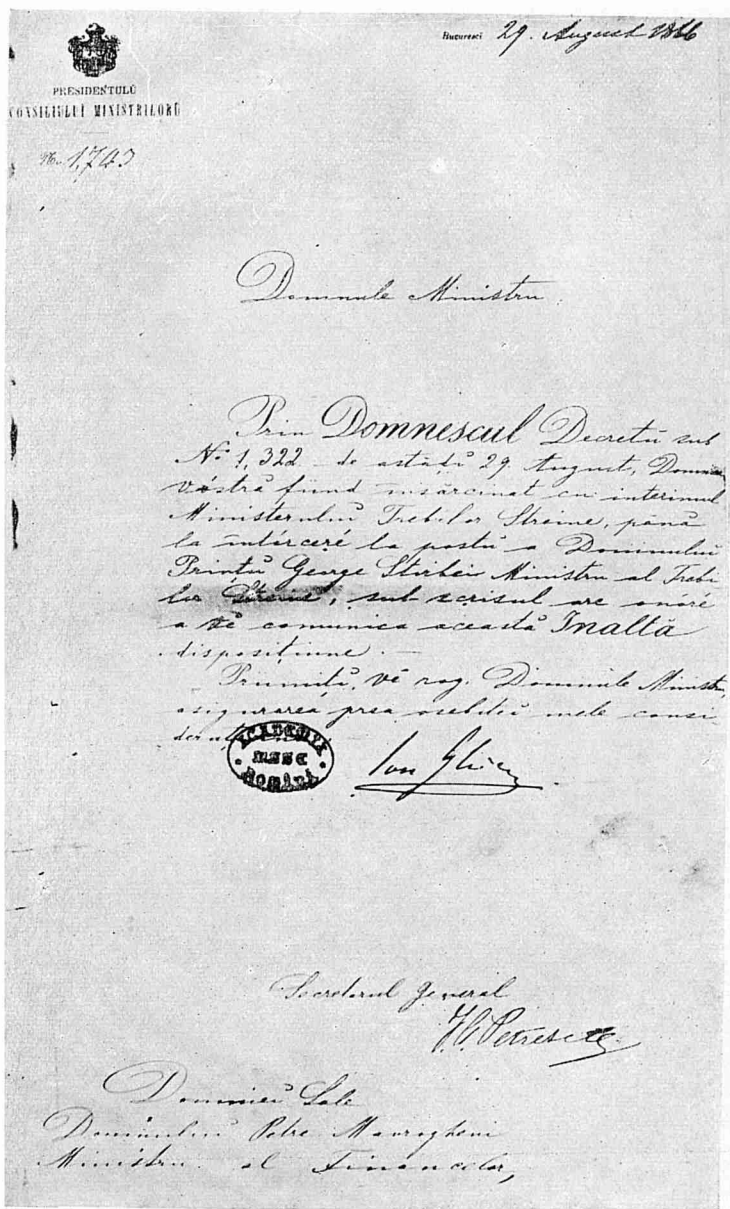 Bucuresci 29. August 1866
PRESIDENTULŬ
CONSILIULUI MINISTRILORŬ
No. 1,743
Domnule Ministru
Prin Domnescul Decretŭ sub
No. 1,322 de astădi 29 August, Domnia
vóstră fiind însărcinat cu interimul
Ministerului Trebilor Streine, pănă
la întórceré la postŭ a Domnului
Prințŭ George Stirbei Ministru al Trebi
lor Streine, sub scrisul are onóre
a vĕ comunica această Inaltă
disposițiune. —
Priimiți, vĕ rog, Domnule Ministru,
asigurarea prea osebitei mele consi
ACADEMIA
ROMÂNĂ
Ion Ghica
Secretarul General
Petrescu
Domniei Sale
Domnului Petre Mavrogheni
Ministru al Financelor,